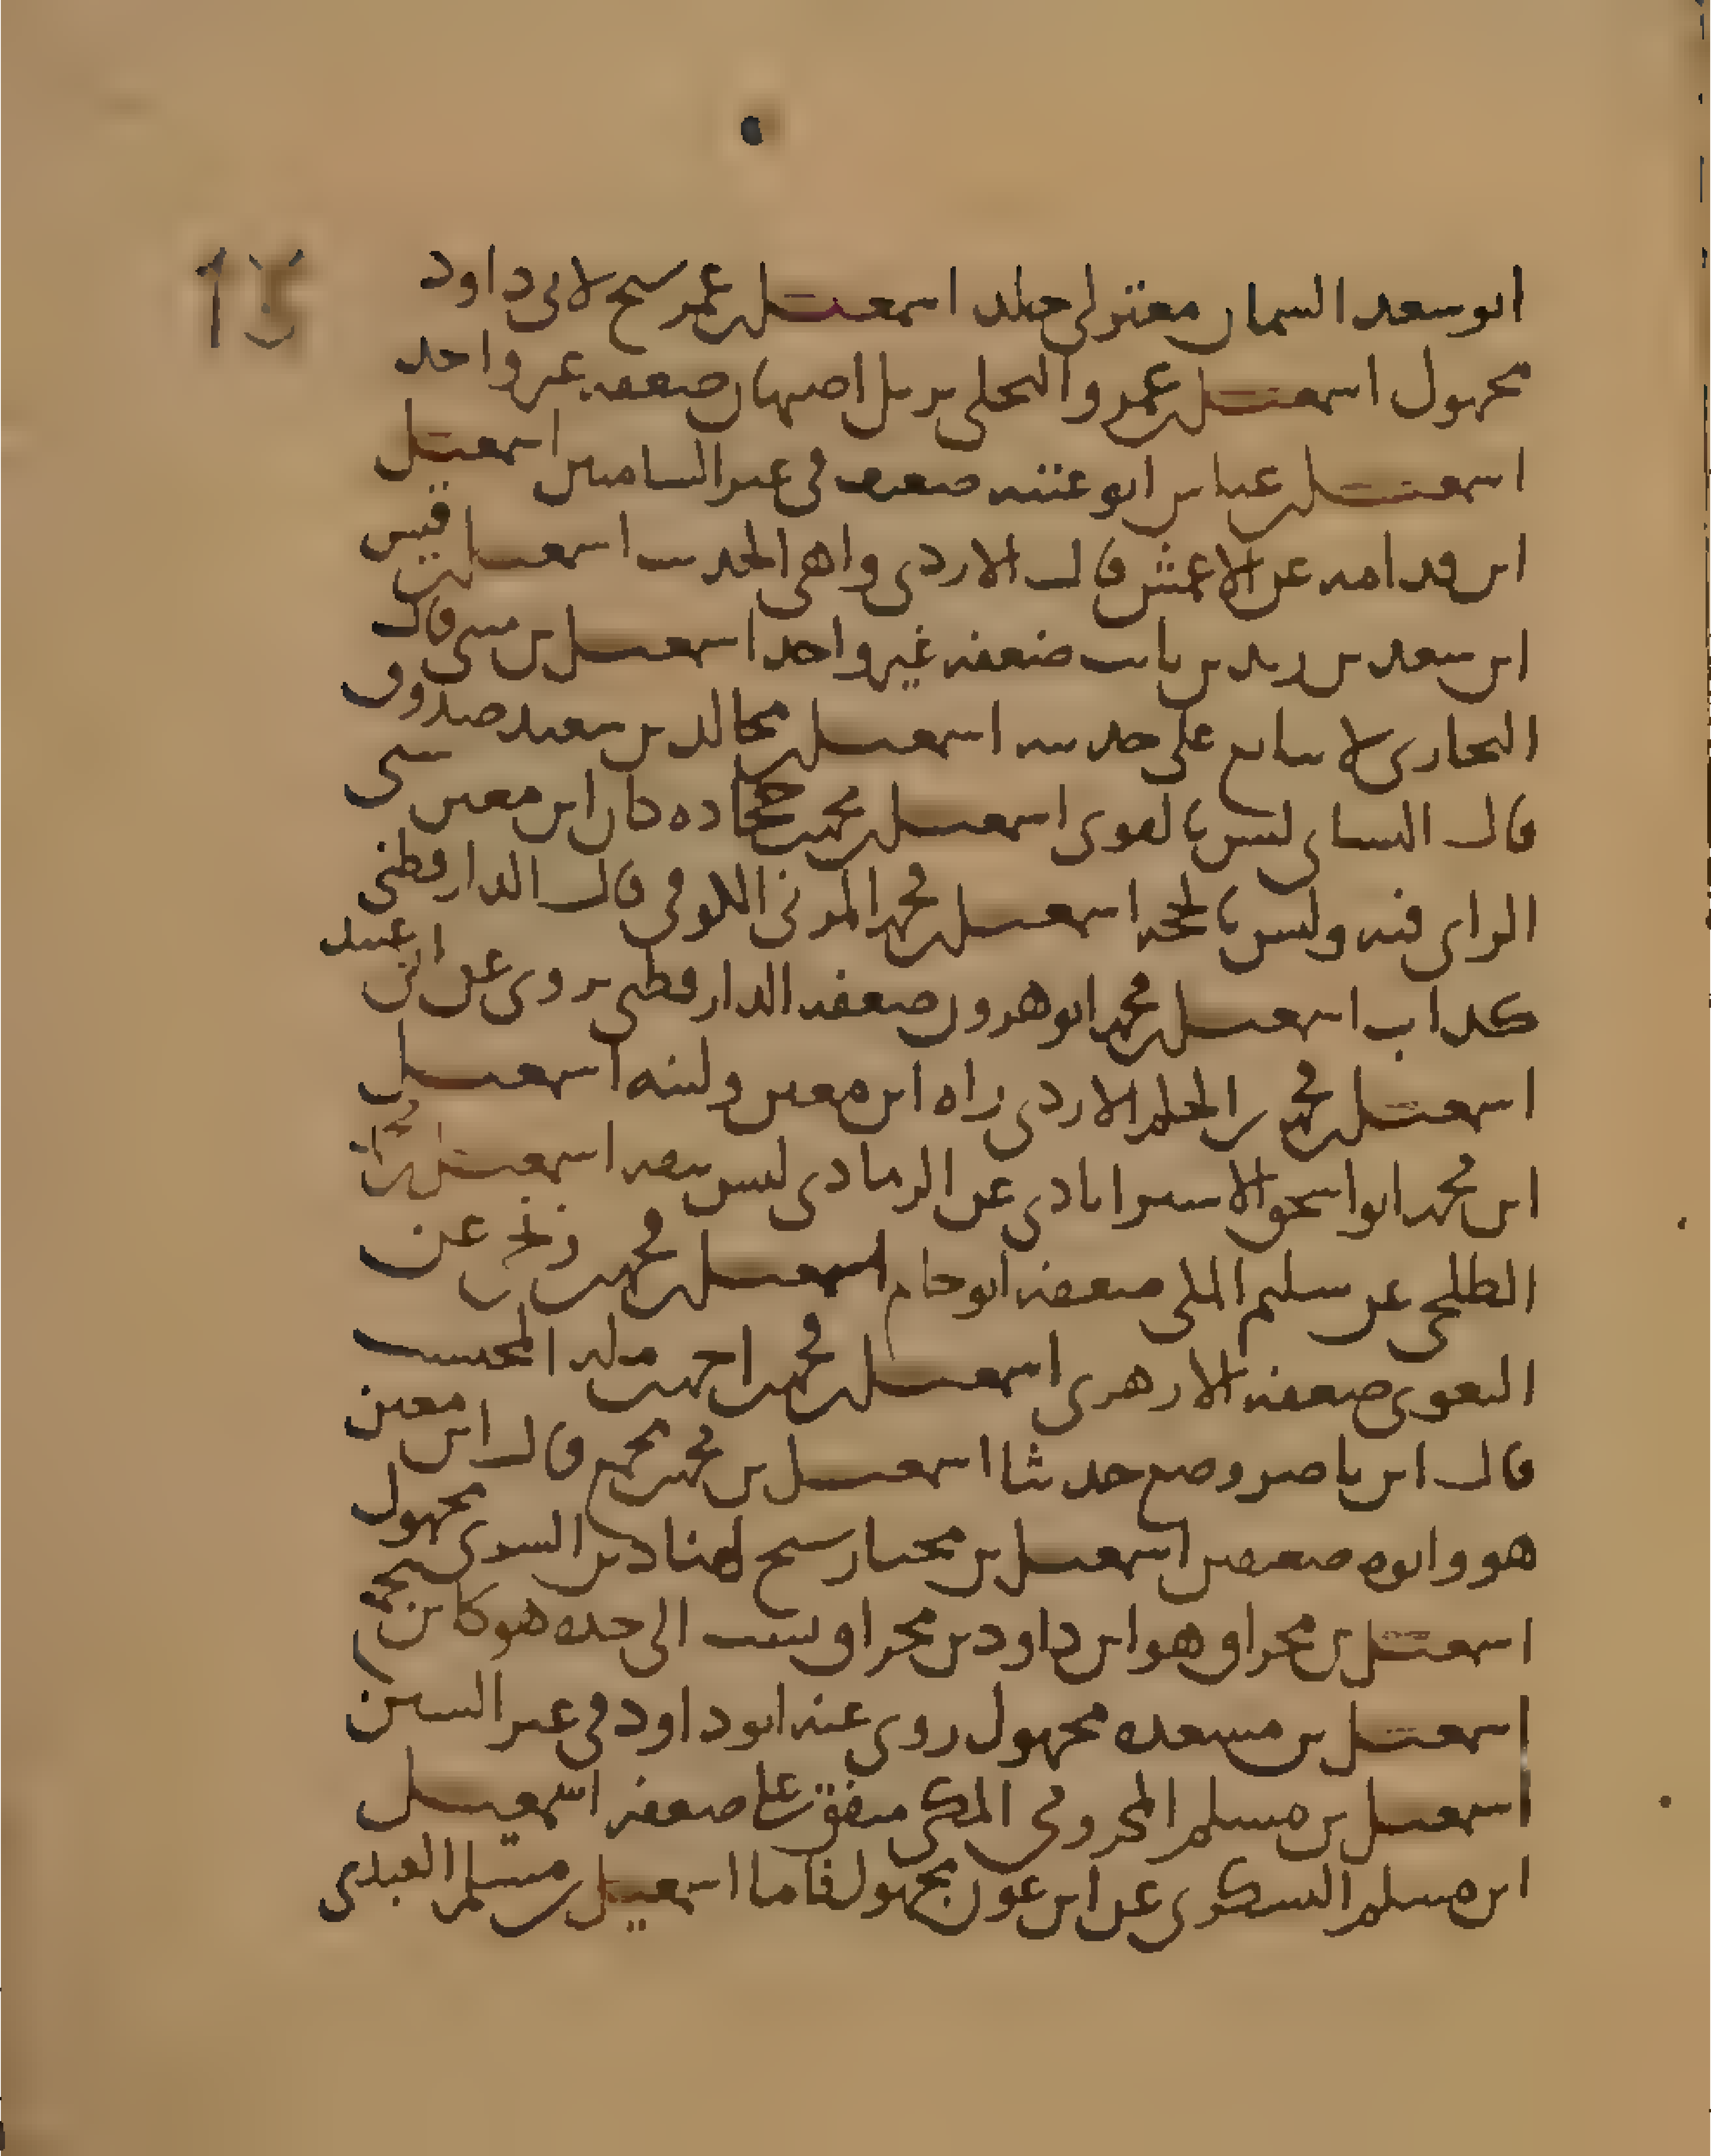 ابو سعد السمان معتزلي جلد اسمعيل بن عمر شيخ لابي داود
مجهول اسمعيل بن عمرو البجلي نزيل اصبهان ضعفه غير واحد
اسمعيل بن عياش ابو عتبه ضعيف في غير الشاميين اسمعيل
ابن قدامه عن الاعمش قال الازدي واهي الحديث اسمعيل بن قيس
ابن سعد بن زيد بن ثابت ضعفه غير واحد اسمعيل بن مثنى قال
البخاري لا يتابع على حديثه اسمعيل بن مجالد بن سعيد صدوق
قال النسائي ليس بالقوي اسمعيل بن محمد بن جحاده كان ابن معين سيئ
الراي فيه وليس بالحجه اسمعيل بن محمد المزني الكوفي قال الدارقطني
كذاب اسمعيل بن محمد ابو هرون ضعفه الدارقطني يروي عن ابن عبيد
اسمعيل بن محمد بن الحكم الازدي راه ابن معين ولينه اسمعيل
ابن محمد ابو اسحق الاستراباذي عن الرمادي ليس بثقه اسمعيل بن
الطلحي عن سليم المكي ضعفه ابو حاتم اسمعيل بن محمد بن زنجي عن
البغوي ضعفه الازهري اسمعيل بن محمد بن احمد بن مله المحتسب
قال ابن ناصر وضع حديثا اسمعيل بن محمد بن مجمع قال ابن معين
هو وابوه ضعيفين اسمعيل بن مختار شيخ لهناد بن السري مجهول
اسمعيل بن مخراق هو ابن داود بن مخراق ينسب الى جده هو كابن
اسمعيل بن مسعده مجهول روى عنه ابو داود في غير السنن
اسمعيل بن مسلم المخزومي المكي متفق على ضعفه اسمعيل
ابن مسلم السكوني عن ابن عون مجهول فاما اسمعيل بن مسلم العبدي